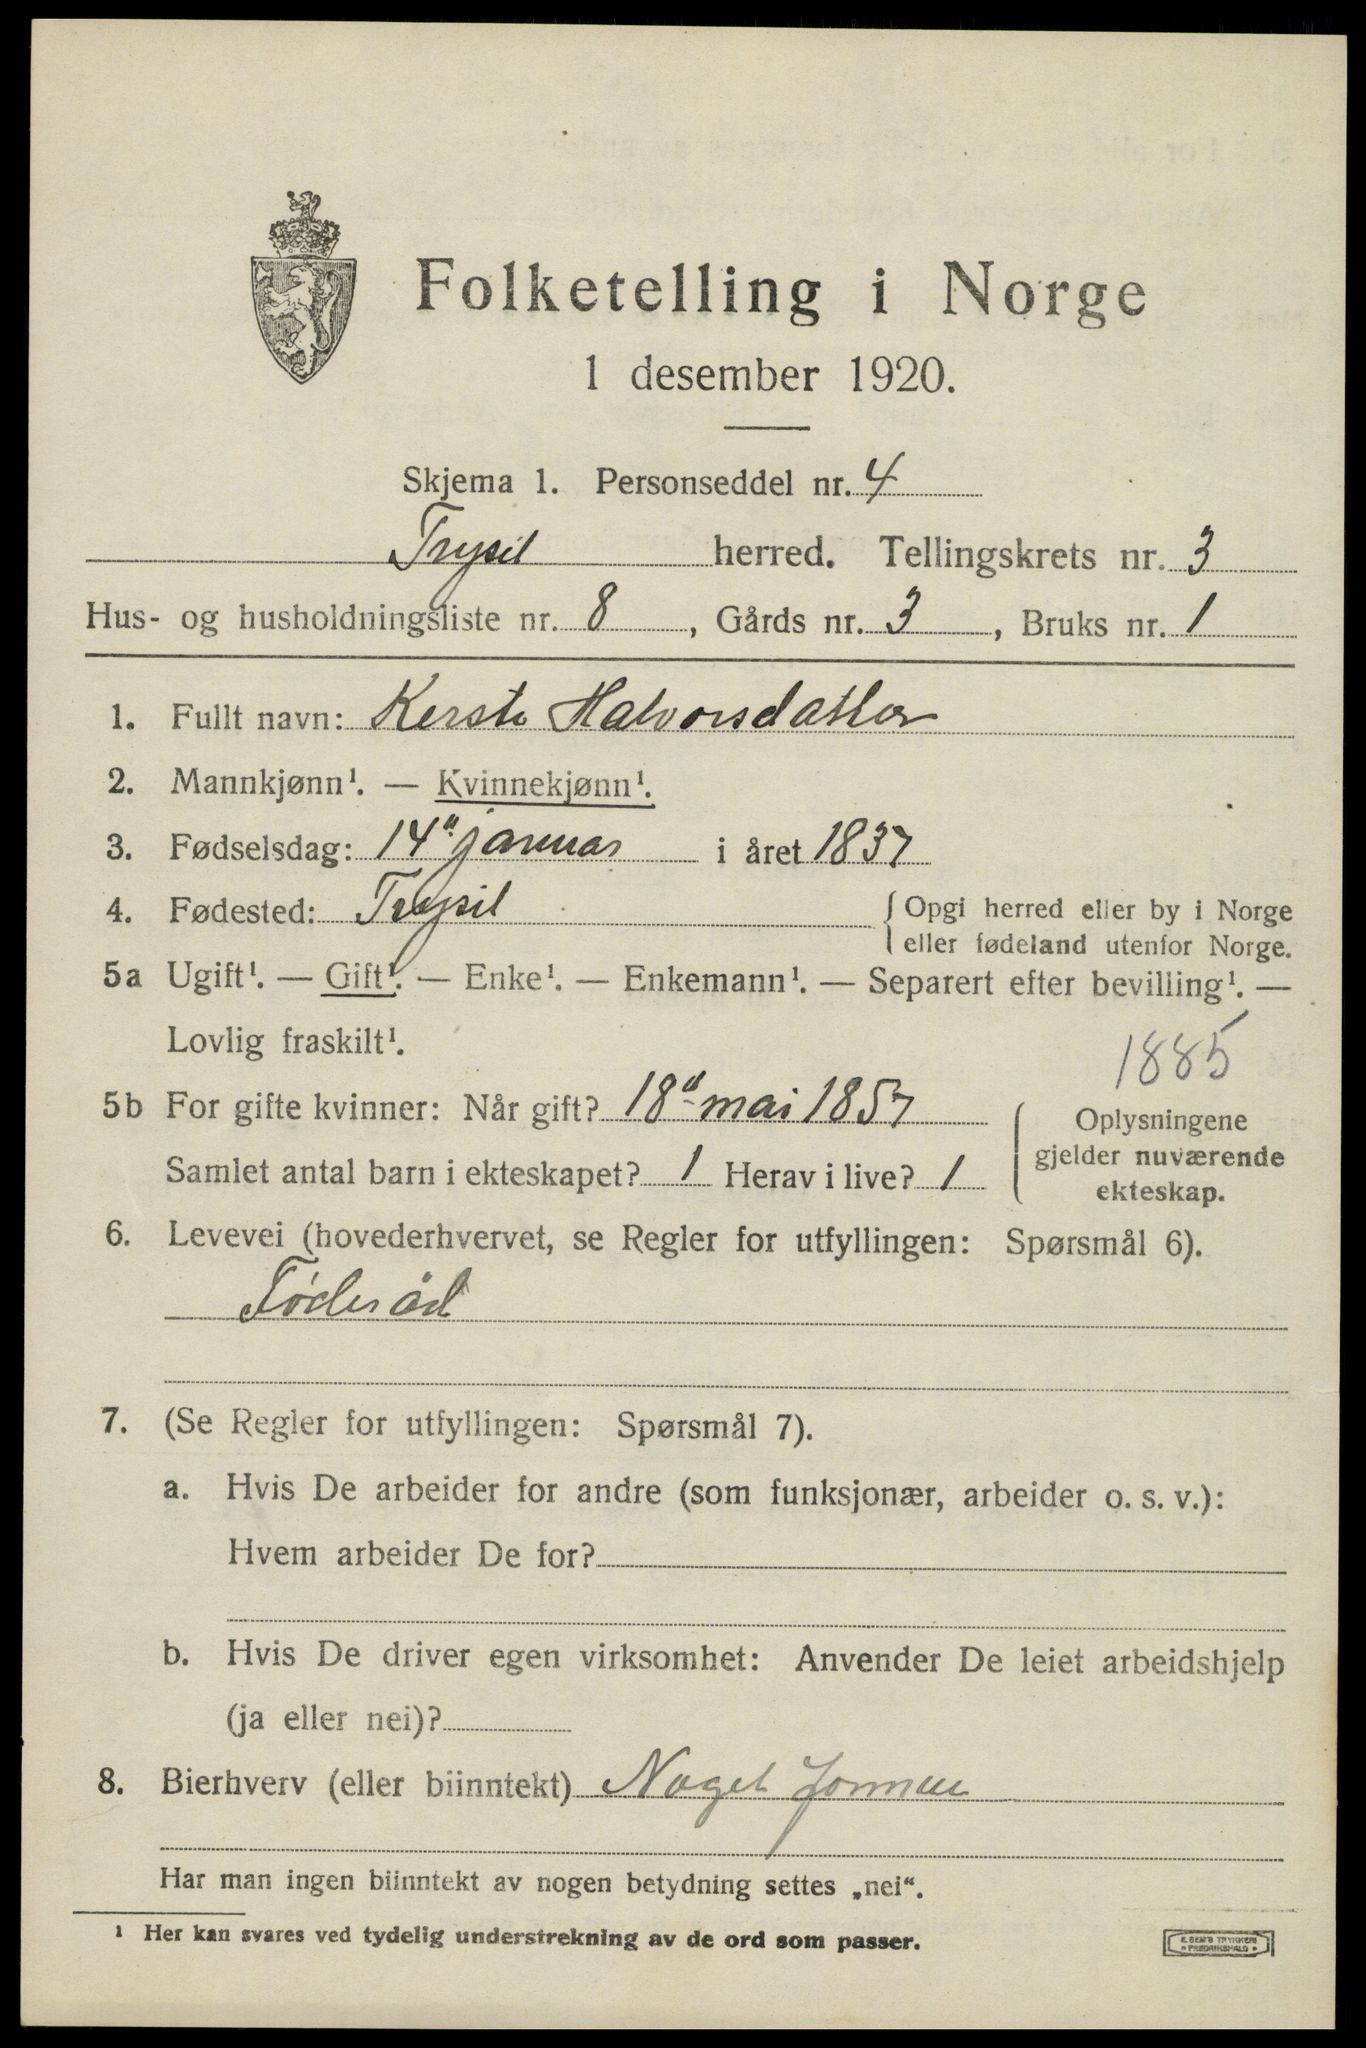 Folketelling i Norge
1 desember 1920.
Skjema 1. Personseddel nr. 4
Trysil herred. Tellingskrets nr. 3
Hus- og husholdningsliste nr. 8, Gårds nr. 3, Bruks nr. 1
1. Fullt navn: Kersti Halvorsdatter
2. Mannkjønn¹. — Kvinnekjønn¹.
3. Fødselsdag: 14" januar i året 1837
4. Fødested: Trysil { Opgi herred eller by i Norge
eller fødeland utenfor Norge.
5a Ugift¹. — Gift¹. — Enke¹. — Enkemann¹. — Separert efter bevilling¹. —
Lovlig fraskilt¹.
1885
5b For gifte kvinner: Når gift? 18d mai 1857
Samlet antal barn i ekteskapet? 1 Herav i live? 1
Oplysningene
gjelder nuværende
ekteskap.
6. Levevei (hovederhvervet, se Regler for utfyllingen: Spørsmål 6).
Føderåd
7. (Se Regler for utfyllingen: Spørsmål 7).
a. Hvis De arbeider for andre (som funksjonær, arbeider o. s. v.):
Hvem arbeider De for?
b. Hvis De driver egen virksomhet: Anvender De leiet arbeidshjelp
(ja eller nei)?
8. Bierhverv (eller biinntekt) Noget
Har man ingen biinntekt av nogen betydning settes „nei“.
¹ Her kan svares ved tydelig understrekning av de ord som passer.
E. SEM'S TRYKKERI
FREDRIKSHALD